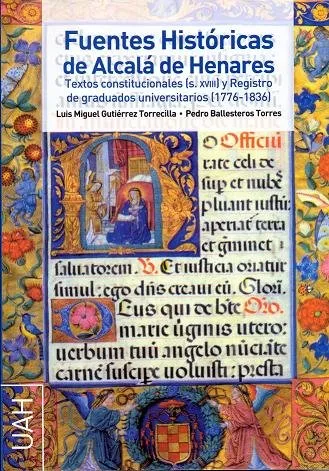 Fuentes Históricas
de Alcalá de Henares
Textos constitucionales (s. XVIII) y Registro
de graduados universitarios (1776-1836)
Luis Miguel Gutiérrez Torrecilla • Pedro Ballesteros Torres
Officiū
rate celi de
sup et nubes
pluant iustū:
aperiat terra
et gīminet
saluatorem. V. Et iusticia oriatur
simul: ego dñs creaui eū. Glorī.
Eus qui de bte Oro.
marie uĩginis utero:
uerbum tuū angelo nūciāte
carne suscipe uoluisti: presta
UAH